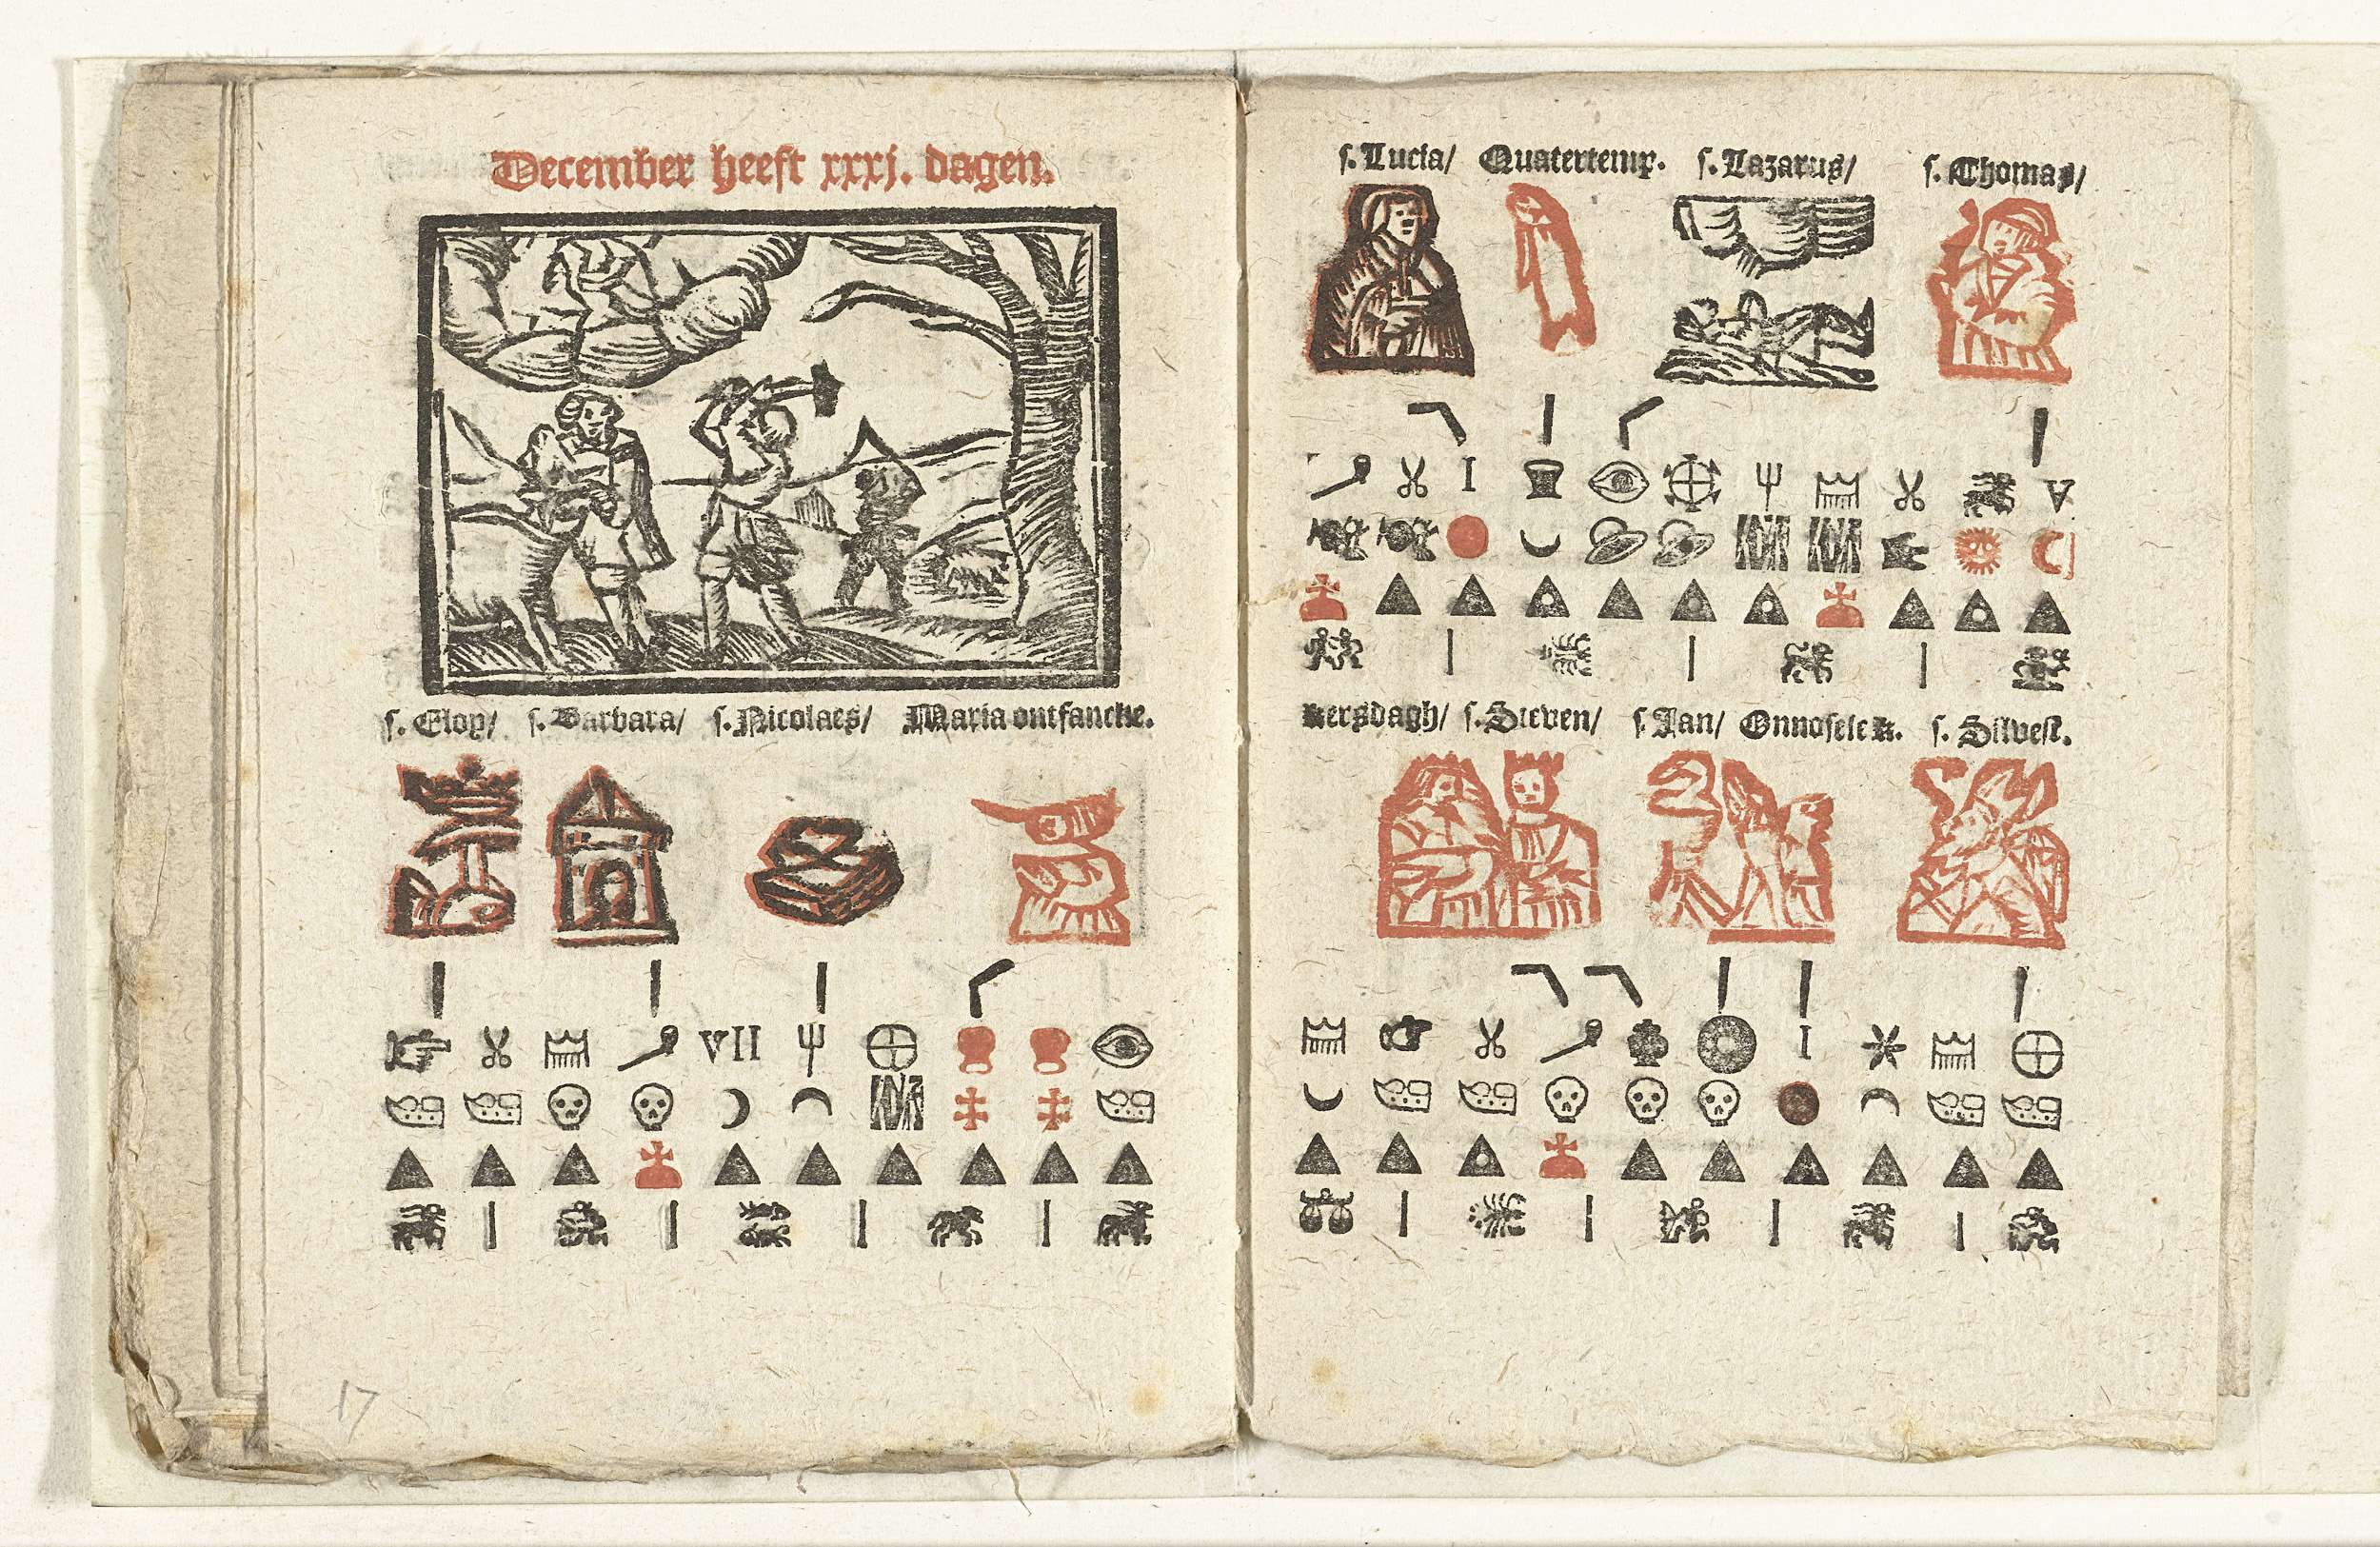 December heeft xxxj. dagen.
s. Eloy/ s. Barbara/ s. Nicolaes/ Maria ontfancke.
VII
17
s. Lucia/ Quatertemp. s. Lazarus/ s. Thomas/
I
kersdagh/ s. Steven/ s. Jan/ Onnosele k. s. Silvest.
I